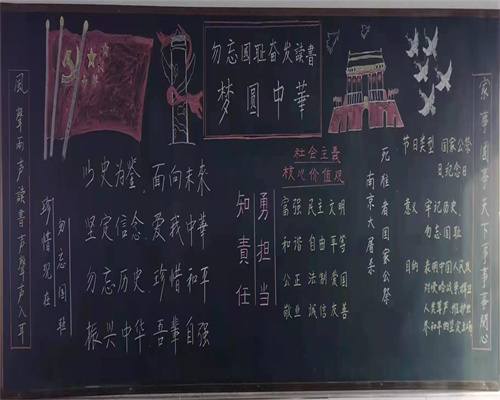 勿忘國耻奋发读書
梦圓中華
風聲雨声读書声声声入耳
家事國事天下事事事関心
以史为鉴,面向未來
坚定信念,爱我中華
勿忘历史,珍惜和平
振兴中华,吾輩自强
勿忘国耻
珍惜现在
勇担当
知責任
社会主義
核心价值观
富强 民主 文明
和谐 自由 平等
公正 法制 爱国
敬业 诚信 友善
南京大屠杀
死难者国家公祭
节日类型 国家公祭
日纪念日
意义 牢记历史,
勿忘国耻
目的 表明中国人民反
对侵略战争捍卫
人类尊严维护世
界和平的坚定立场